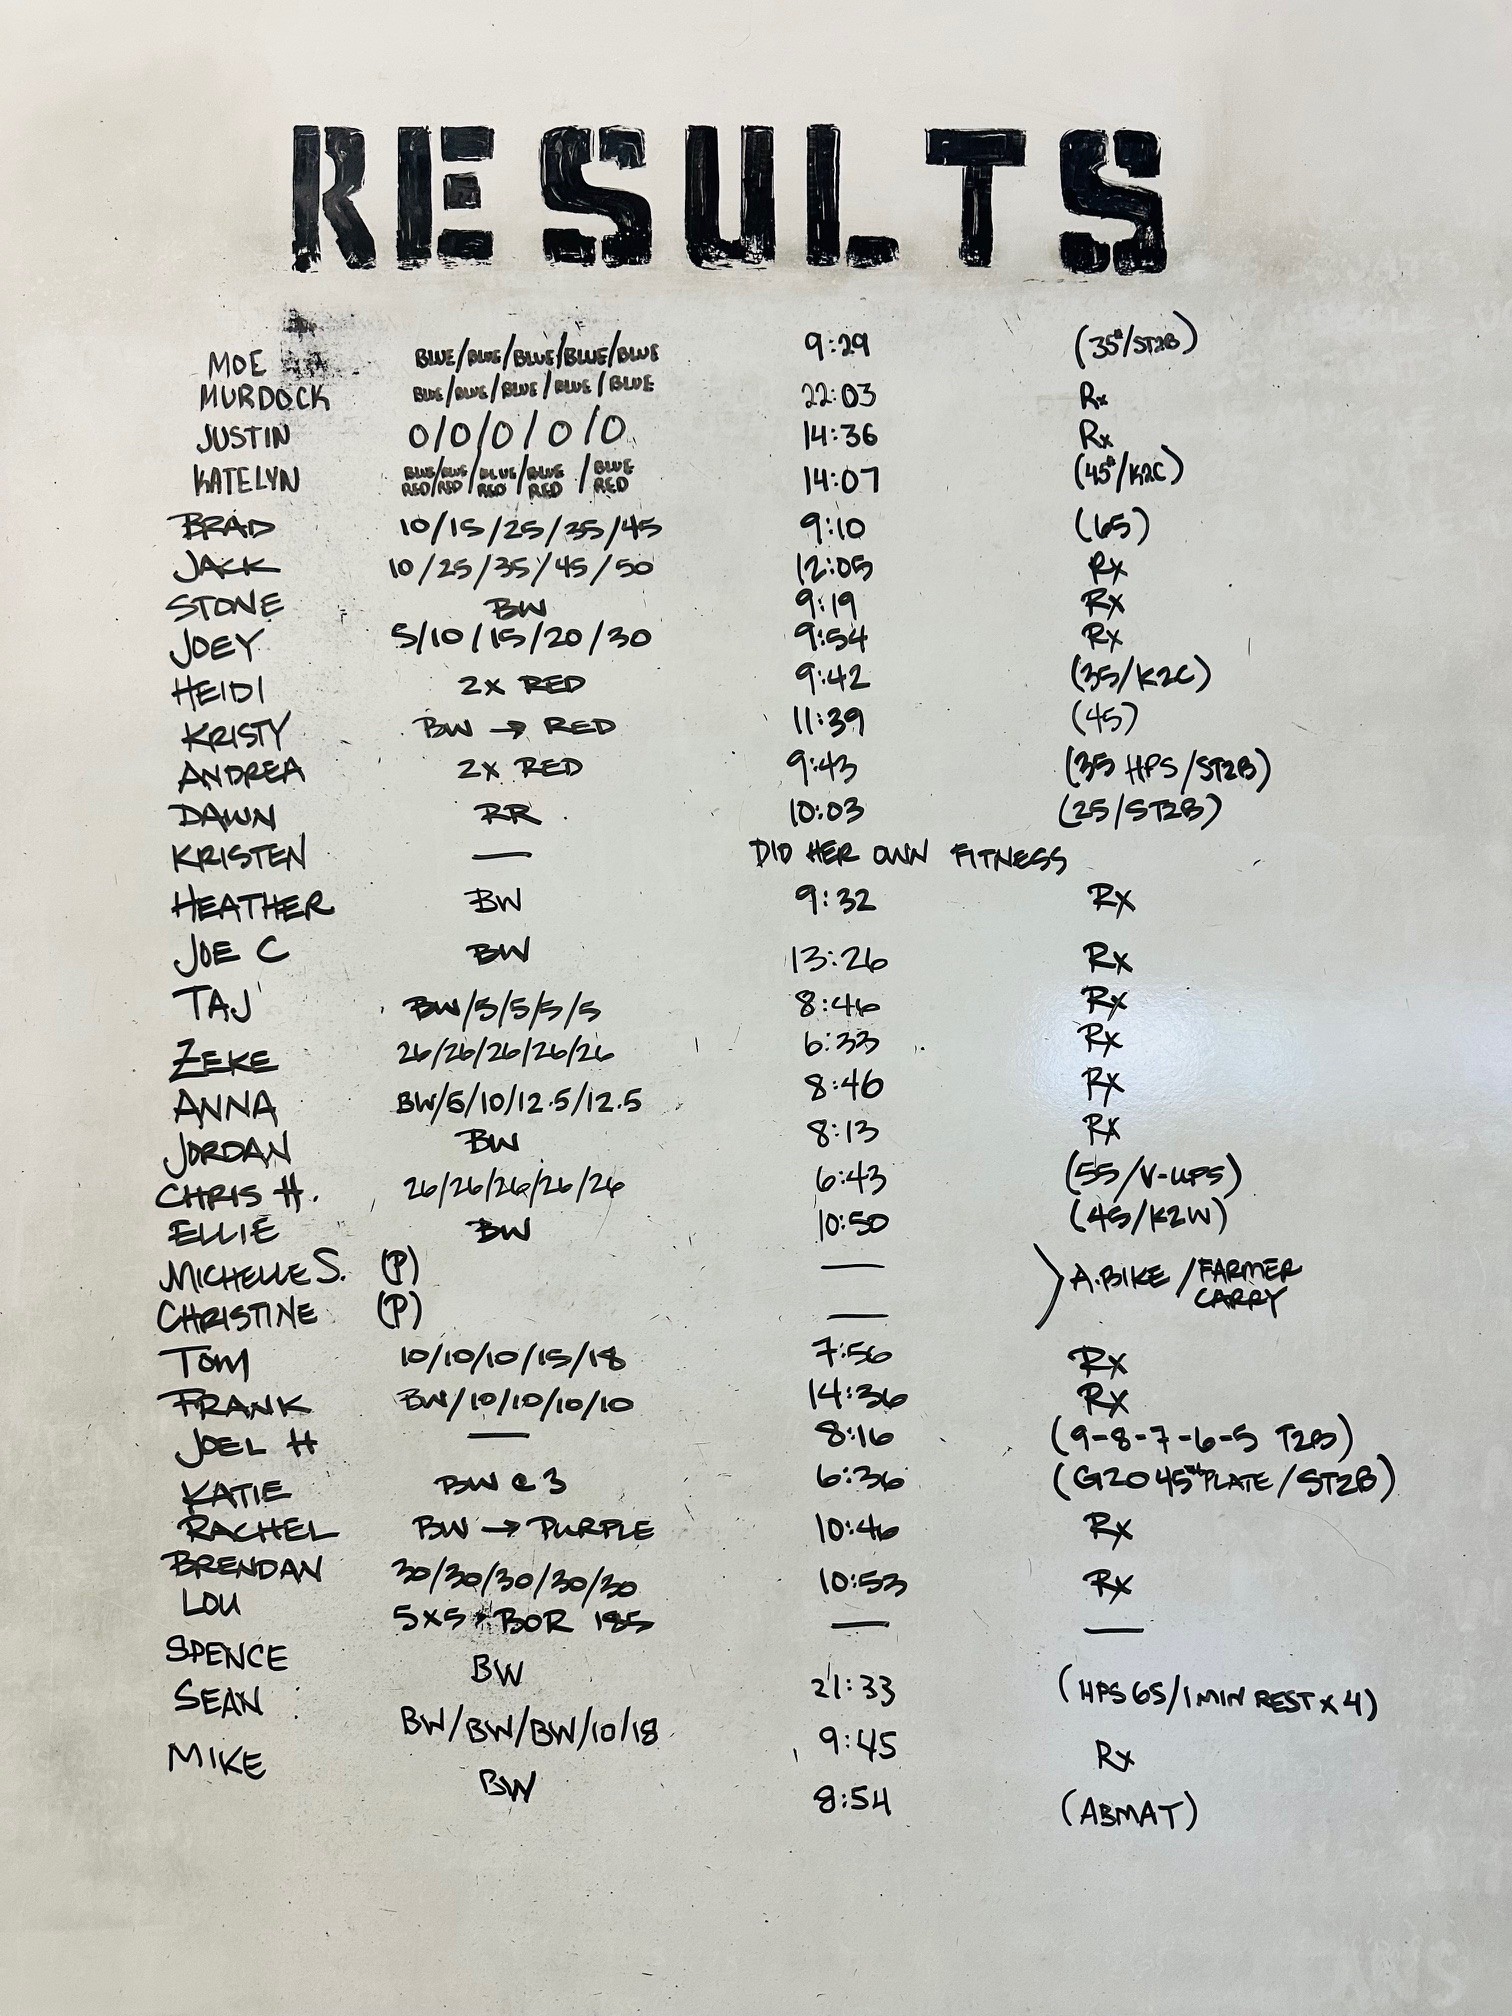 RESULTS
MOE BLUE/BLUE/BLUE/BLUE/BLUE 9:29 (35#/ST2B)
MURDOCK BLUE/BLUE/BLUE/BLUE/BLUE 22:03 Rx
JUSTIN 0/0/0/0/0 14:36 Rx
KATELYN BLUE/BLUE/BLUE/BLUE/BLUE 14:07 (45#/K2C)
RED/RED/RED/RED/RED
BRAD 10/15/25/35/45 9:10 (65)
JACK 10/25/35/45/50 12:05 Rx
STONE BW 9:19 Rx
JOEY 5/10/15/20/30 9:54 Rx
HEIDI 2X RED 9:42 (35/K2C)
KRISTY BW → RED 11:39 (45)
ANDREA 2X RED 9:43 (35 HPS/ST2B)
DAWN RR 10:03 (25/ST2B)
KRISTEN — DID HER OWN FITNESS
HEATHER BW 9:32 Rx
JOE C BW 13:26 Rx
TAJ BW/5/5/5/5 8:46 Rx
ZEKE 26/26/26/26/26 6:33 Rx
ANNA BW/5/10/12.5/12.5 8:46 Rx
JORDAN BW 8:13 Rx
CHRIS H. 26/26/26/26/26 6:43 (55/V-UPS)
ELLIE BW 10:50 (45/K2W)
MICHELLE S. (P) — ) A.BIKE/FARMER CARRY
CHRISTINE (P) —
TOM 10/10/10/15/18 7:56 Rx
FRANK BW/10/10/10/10 14:36 Rx
JOEL H — 8:16 (9-8-7-6-5 T2B)
KATIE BW e 3 6:36 (G2O 45# PLATE/ST2B)
RACHEL BW → PURPLE 10:46 Rx
BRENDAN 30/30/30/30/30 10:53 Rx
LOU 5X5 BOR 185 — —
SPENCE BW 21:33 (HPS 65/1 MIN REST X 4)
SEAN BW/BW/BW/10/18 9:45 Rx
MIKE BW 8:54 (ABMAT)